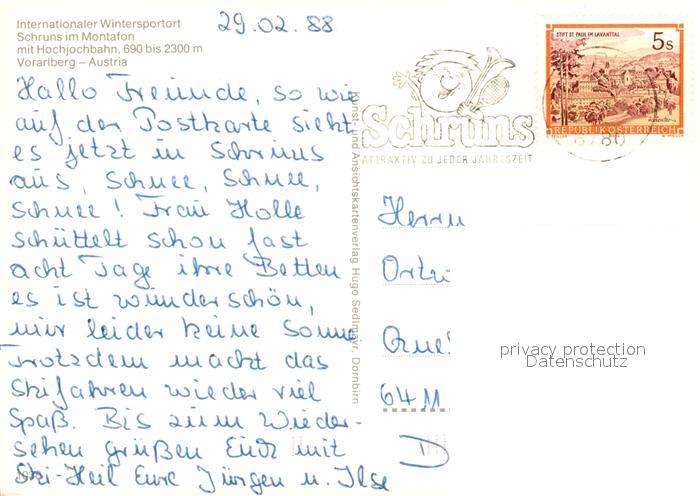 Internationaler Wintersportort
Schruns im Montafon
mit Hochjochbahn, 690 bis 2300 m
Vorarlberg – Austria
29.02.88
Hallo Freunde, so wie
auf der Postkarte sieht
es jetzt in Schruns
aus, Schnee, Schnee,
Schnee! Frau Holle
schüttelt schon fast
acht Tage ihre Betten
es ist wunderschön,
nur leider keine Sonne
Trotzdem macht das
Skifahren wieder viel
Spaß. Bis zum Wieder-
sehen grüßen Euch mit
Ski-Heil Eure Jürgen u. Ilse
Kunst- und Ansichtskartenverlag Hugo Sedlmayr, Dornbirn
Schruns
ATTRAKTIV ZU JEDER JAHRESZEIT
STIFT ST. PAUL IM LAVANTTAL
5s
REPUBLIK ÖSTERREICH
6780
Herrn
D
privacy protection
Datenschutz